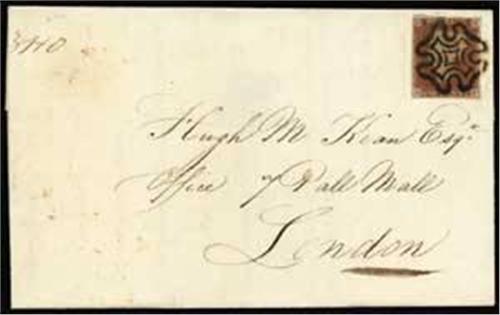 340
Hugh M Kean Esqr
Office 7 Pall Mall
London